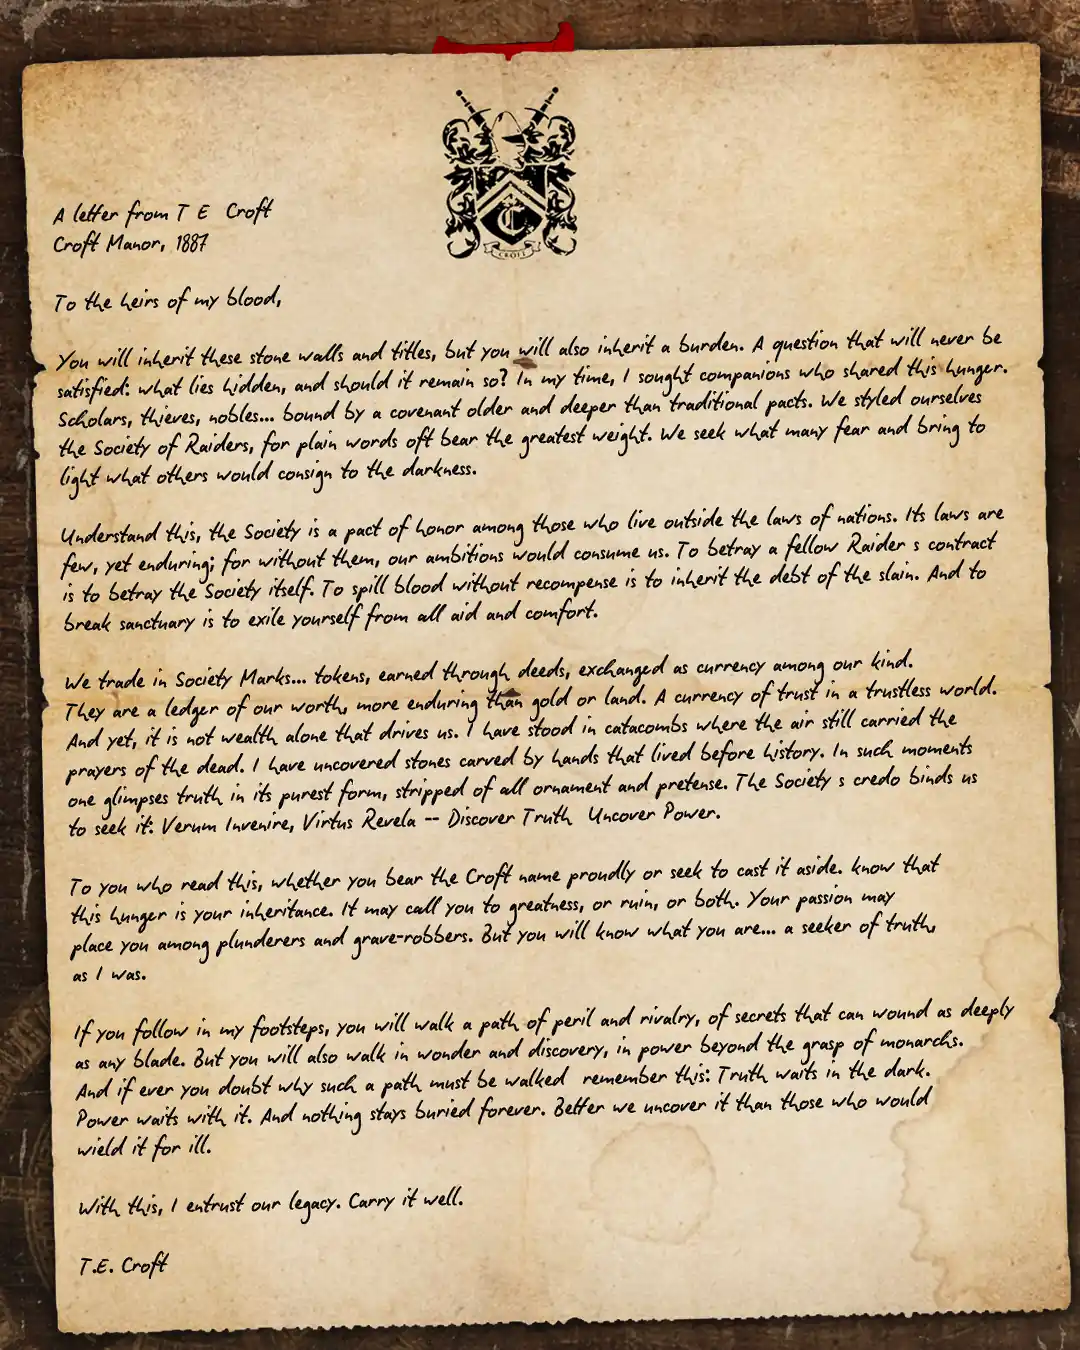 C
CROFT
A letter from T E Croft
Croft Manor, 1887
To the heirs of my blood,
You will inherit these stone walls and titles, but you will also inherit a burden. A question that will never be
satisfied: what lies hidden, and should it remain so? In my time, I sought companions who shared this hunger.
Scholars, thieves, nobles... bound by a covenant older and deeper than traditional pacts. We styled ourselves
the Society of Raiders, for plain words oft bear the greatest weight. We seek what many fear and bring to
light what others would consign to the darkness.
Understand this, the Society is a pact of honor among those who live outside the laws of nations. Its laws are
few, yet enduring; for without them, our ambitions would consume us. To betray a fellow Raider s contract
is to betray the Society itself. To spill blood without recompense is to inherit the debt of the slain. And to
break sanctuary is to exile yourself from all aid and comfort.
We trade in Society Marks... tokens, earned through deeds, exchanged as currency among our kind.
They are a ledger of our worth, more enduring than gold or land. A currency of trust in a trustless world.
And yet, it is not wealth alone that drives us. I have stood in catacombs where the air still carried the
prayers of the dead. I have uncovered stones carved by hands that lived before history. In such moments
one glimpses truth in its purest form, stripped of all ornament and pretense. The Society s credo binds us
to seek it: Verum Invenire, Virtus Revela -- Discover Truth Uncover Power.
To you who read this, whether you bear the Croft name proudly or seek to cast it aside. know that
this hunger is your inheritance. It may call you to greatness, or ruin, or both. Your passion may
place you among plunderers and grave-robbers. But you will know what you are... a seeker of truth,
as I was.
If you follow in my footsteps, you will walk a path of peril and rivalry, of secrets that can wound as deeply
as any blade. But you will also walk in wonder and discovery, in power beyond the grasp of monarchs.
And if ever you doubt why such a path must be walked remember this: Truth waits in the dark.
Power waits with it. And nothing stays buried forever. Better we uncover it than those who would
wield it for ill.
With this, I entrust our legacy. Carry it well.
T.E. Croft